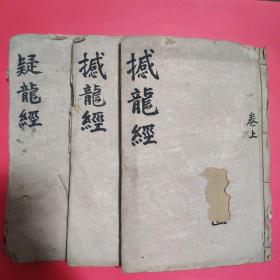 撼龍經
卷上
撼龍經
疑龍經